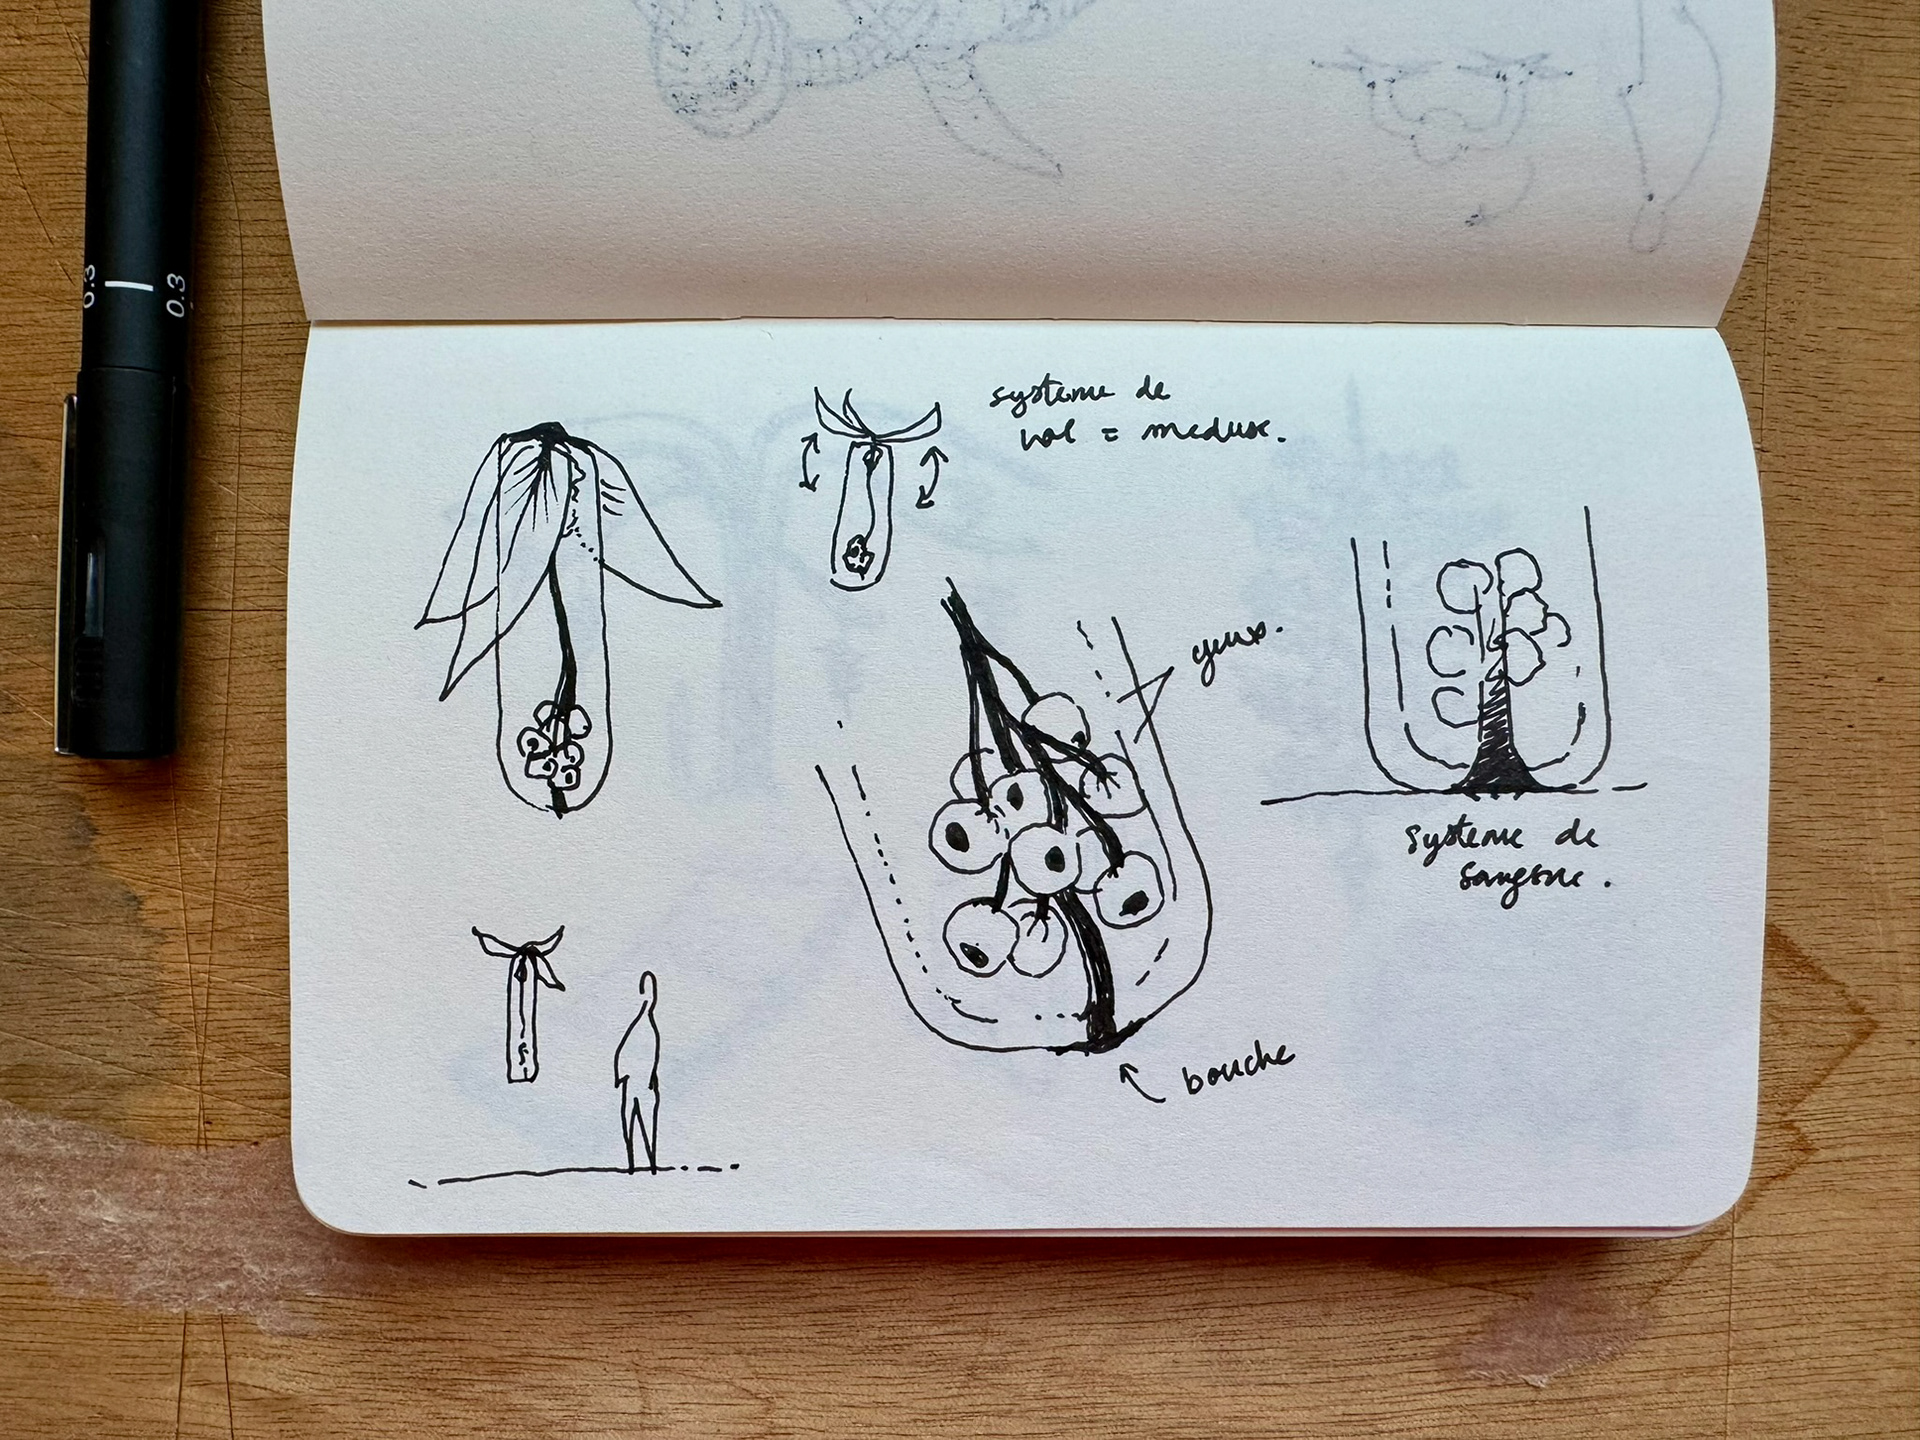 0.3
0.3
systeme de
vol = meduse.
yeux.
systeme de
sangsue.
bouche